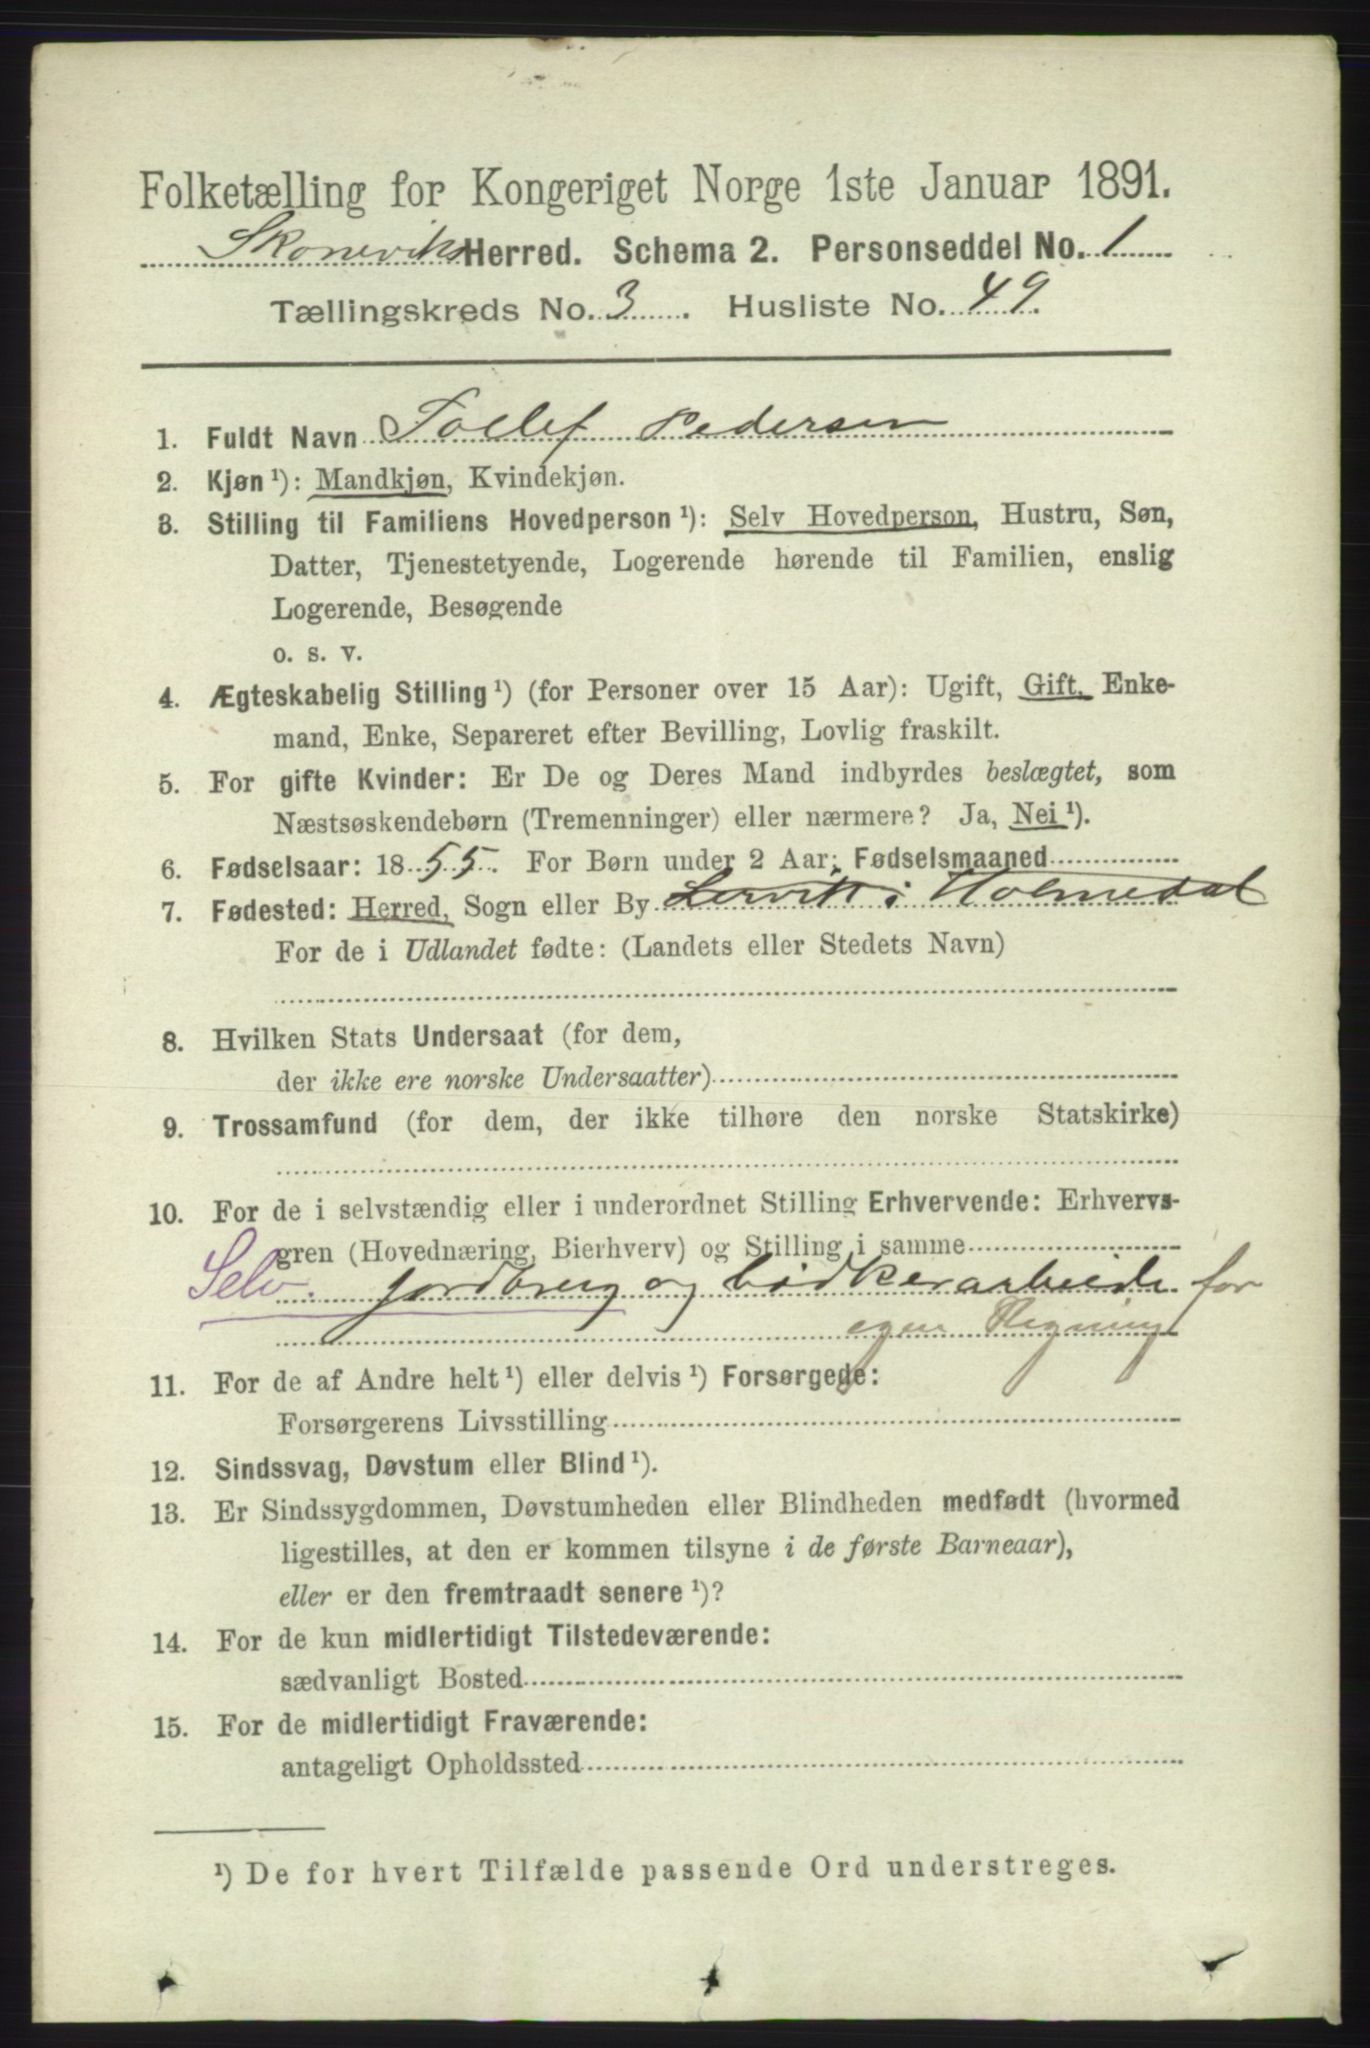 Folketælling for Kongeriget Norge 1ste Januar 1891.
Skoneviks Herred. Schema 2. Personseddel No. 1
Tællingskreds No. 3. Husliste No. 49.
1. Fuldt Navn Tollef Pedersen
2. Kjøn ¹): Mandkjøn, Kvindekjøn.
3. Stilling til Familiens Hovedperson ¹): Selv Hovedperson, Hustru, Søn,
Datter, Tjenestetyende, Logerende hørende til Familien, enslig
Logerende, Besøgende
o. s. v.
4. Ægteskabelig Stilling ¹) (for Personer over 15 Aar): Ugift, Gift, Enke-
mand, Enke, Separeret efter Bevilling, Lovlig fraskilt.
5. For gifte Kvinder: Er De og Deres Mand indbyrdes beslægtet, som
Næstsøskendebørn (Tremenninger) eller nærmere? Ja, Nei ¹).
6. Fødselsaar: 1855. For Børn under 2 Aar: Fødselsmaaned
7. Fødested: Herred, Sogn eller By Lervik i Holmedal
For de i Udlandet fødte: (Landets eller Stedets Navn)
8. Hvilken Stats Undersaat (for dem,
der ikke ere norske Undersaatter)
9. Trossamfund (for dem, der ikke tilhøre den norske Statskirke)
10. For de i selvstændig eller i underordnet Stilling Erhvervende: Erhvervs-
gren (Hovednæring, Bierhverv) og Stilling i samme
Selv. jordbrug og bödkerarbeide for
egen Regning
11. For de af Andre helt ¹) eller delvis ¹) Forsørgede:
Forsørgerens Livsstilling
12. Sindssvag, Døvstum eller Blind ¹).
13. Er Sindssygdommen, Døvstumheden eller Blindheden medfødt (hvormed
ligestilles, at den er kommen tilsyne i de første Barneaar),
eller er den fremtraadt senere ¹)?
14. For de kun midlertidigt Tilstedeværende:
sædvanligt Bosted
15. For de midlertidigt Fraværende:
antageligt Opholdssted
¹) De for hvert Tilfælde passende Ord understreges.